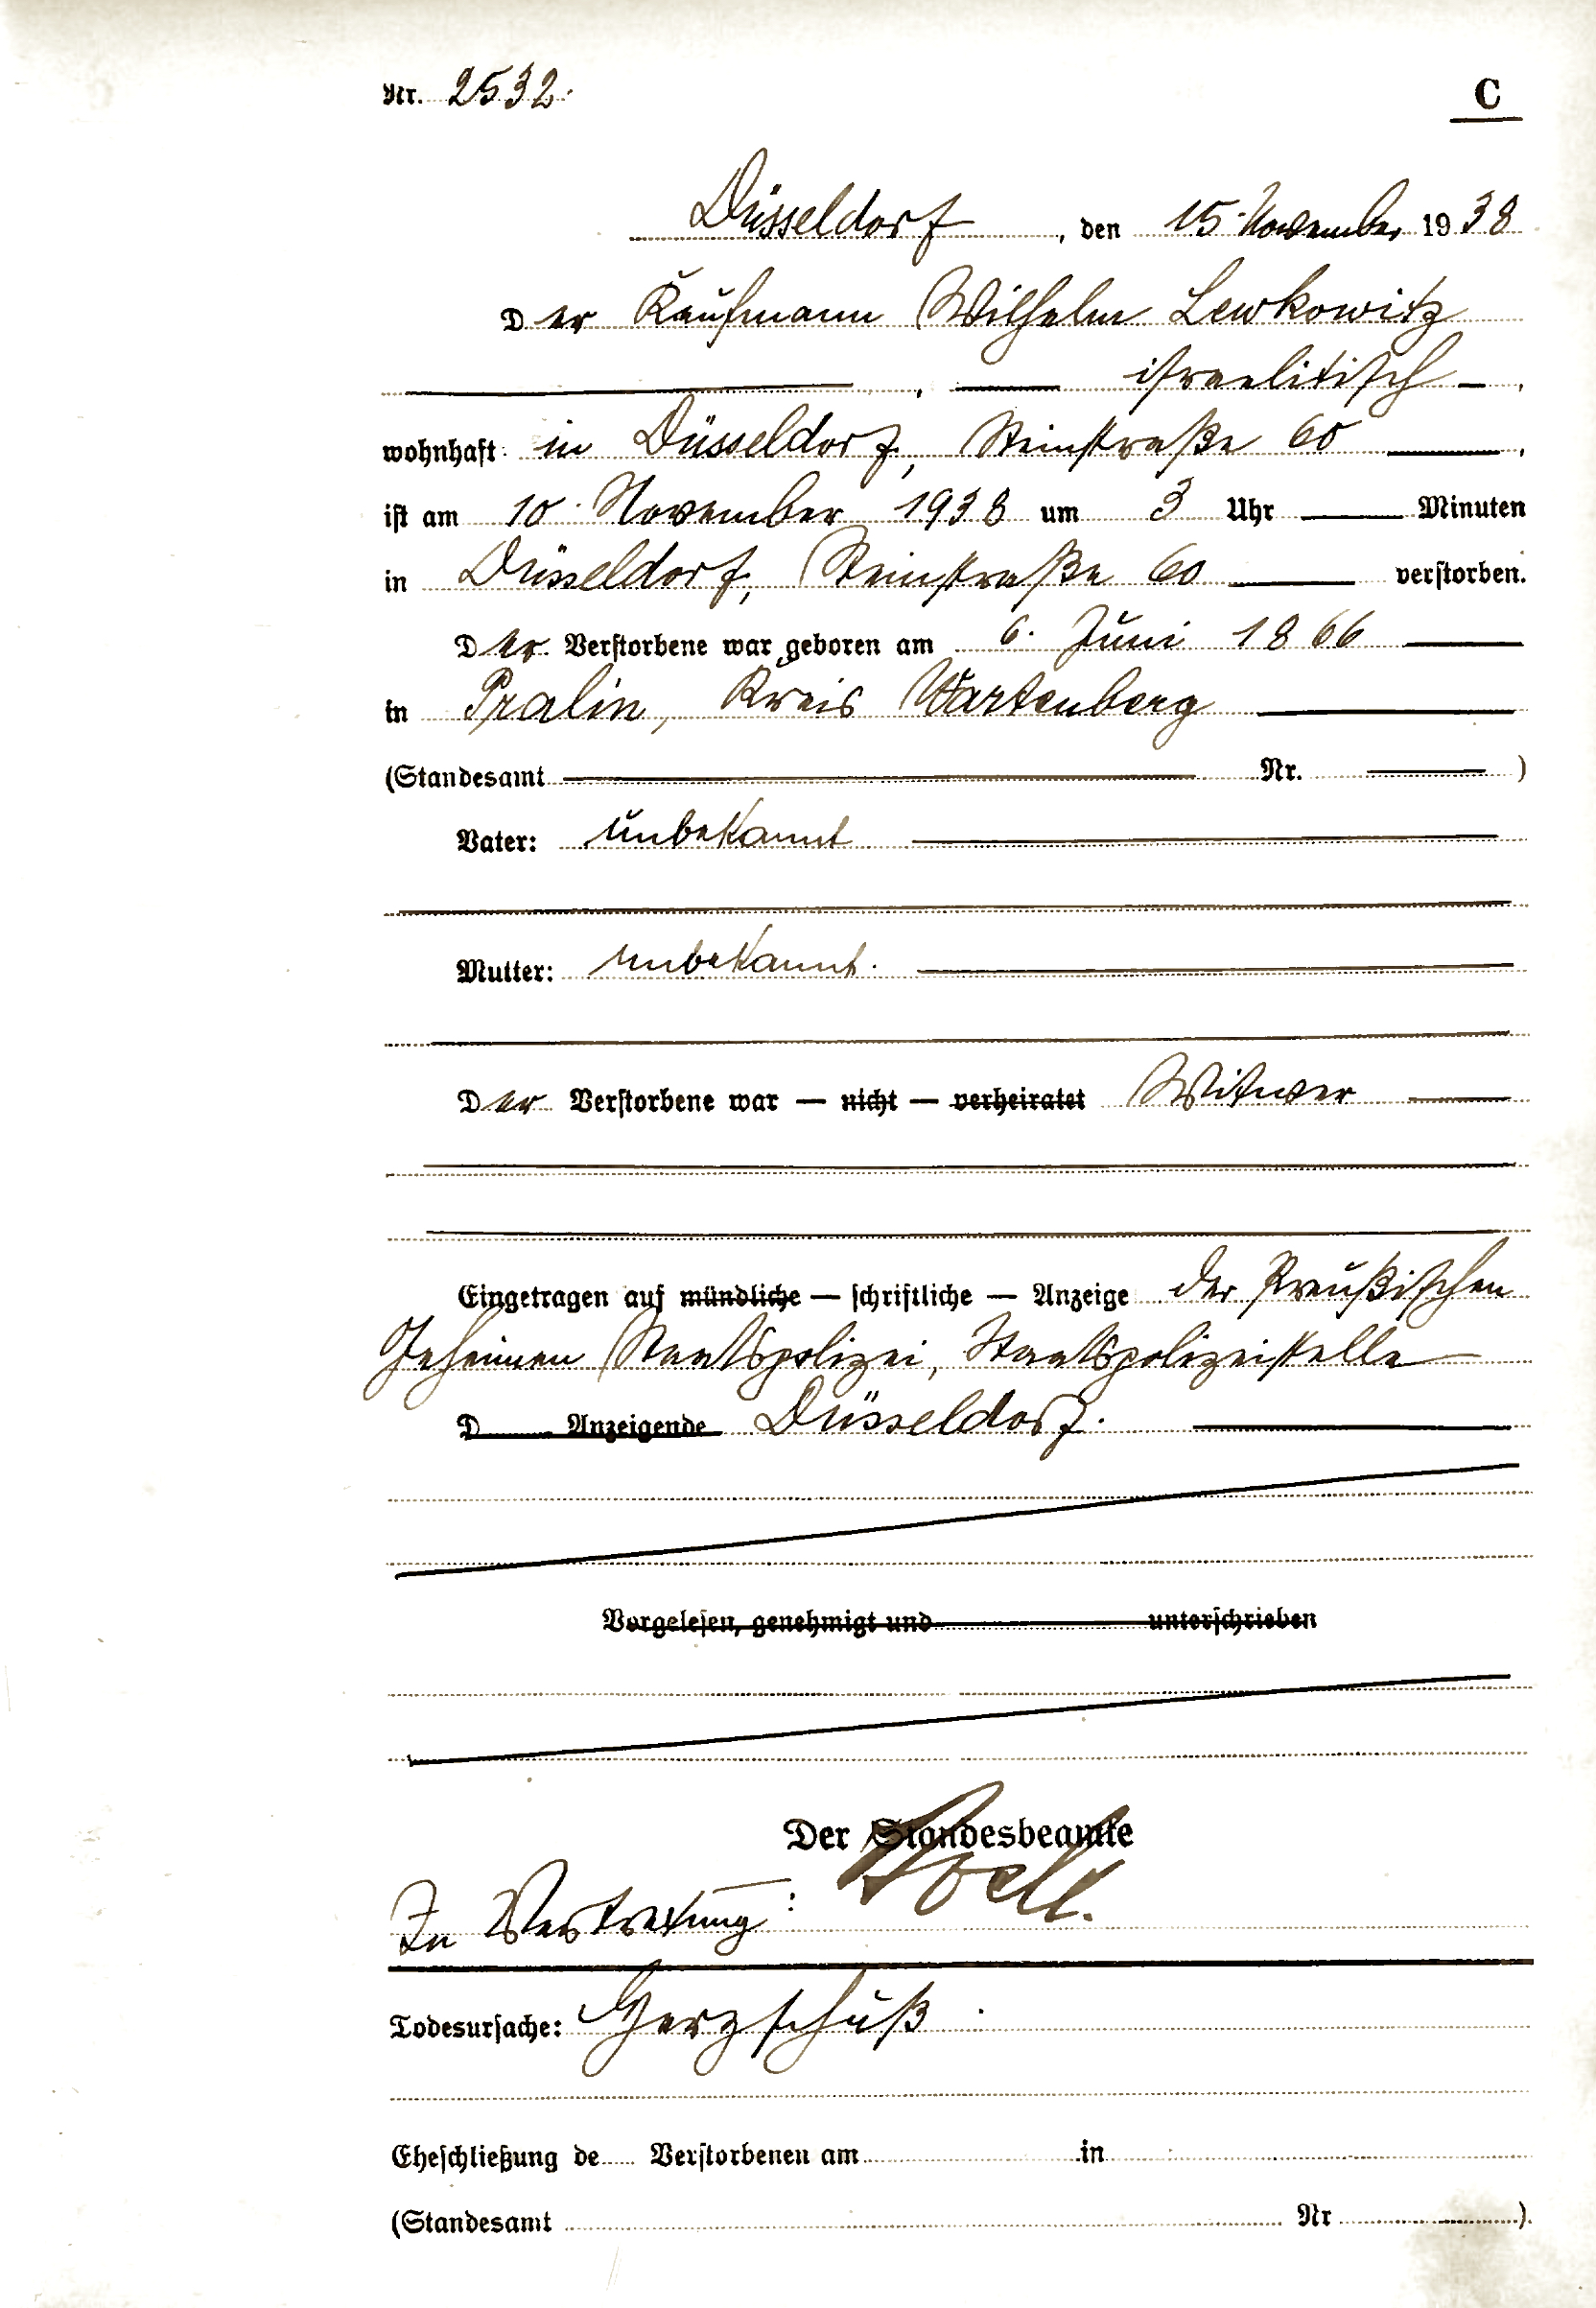 Nr. 2532.
C
Düsseldorf, den 15. November 1938
Der Kaufmann Wilhelm Lewkowitz
, israelitisch,
wohnhaft in Düsseldorf, Steinstraße 60,
ist am 10. November 1938 um 3 Uhr Minuten
in Düsseldorf, Steinstraße 60 verstorben.
Der Verstorbene war geboren am 6. Juni 1866
in Pralin, Kreis Wartenberg
(Standesamt Nr. )
Vater: unbekannt
Mutter: unbekannt.
Der Verstorbene war — nicht — verheiratet Witwer
Eingetragen auf mündliche — schriftliche — Anzeige der Preußischen
Geheimen Staatspolizei, Staatspolizeistelle
D Anzeigende Düsseldorf.
Vorgelesen, genehmigt und unterschrieben
Der Standesbeamte
In Vertretung:
Todesursache: Herzschuß.
Eheschließung de Verstorbenen am in
(Standesamt Nr ).